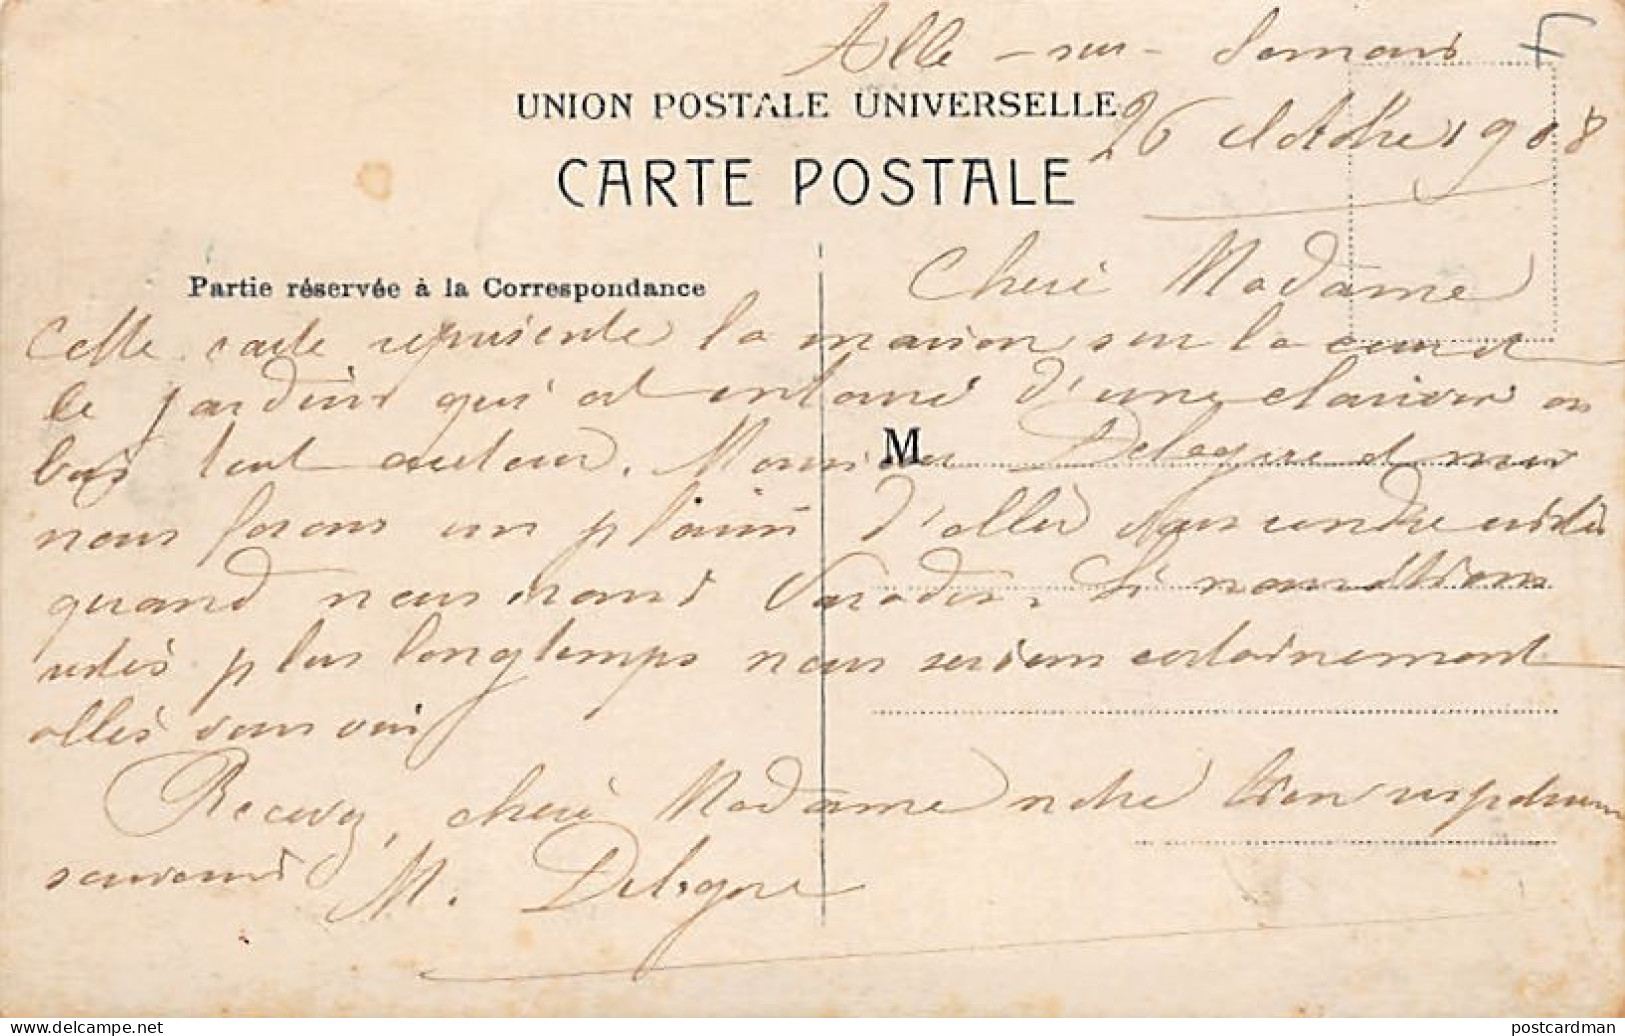 Alle - sur - Semois
UNION POSTALE UNIVERSELLE
26 Octobre 1908
CARTE POSTALE
Cheri Madame
Partie réservée à la Correspondance
Cette carte représente la maison sur la cour et
le jardin qui est entouré d'une en
bois tout autour. Monsieur et moi
M
nous ferons un plaisir d'aller vous rendre visite
quand nous Si nous étions
restés plus longtemps nous serions certainement
allés vous voir
Recevez, cheri Madame notre bien respectueux
souvenir M.
postcardman
www.delcampe.net